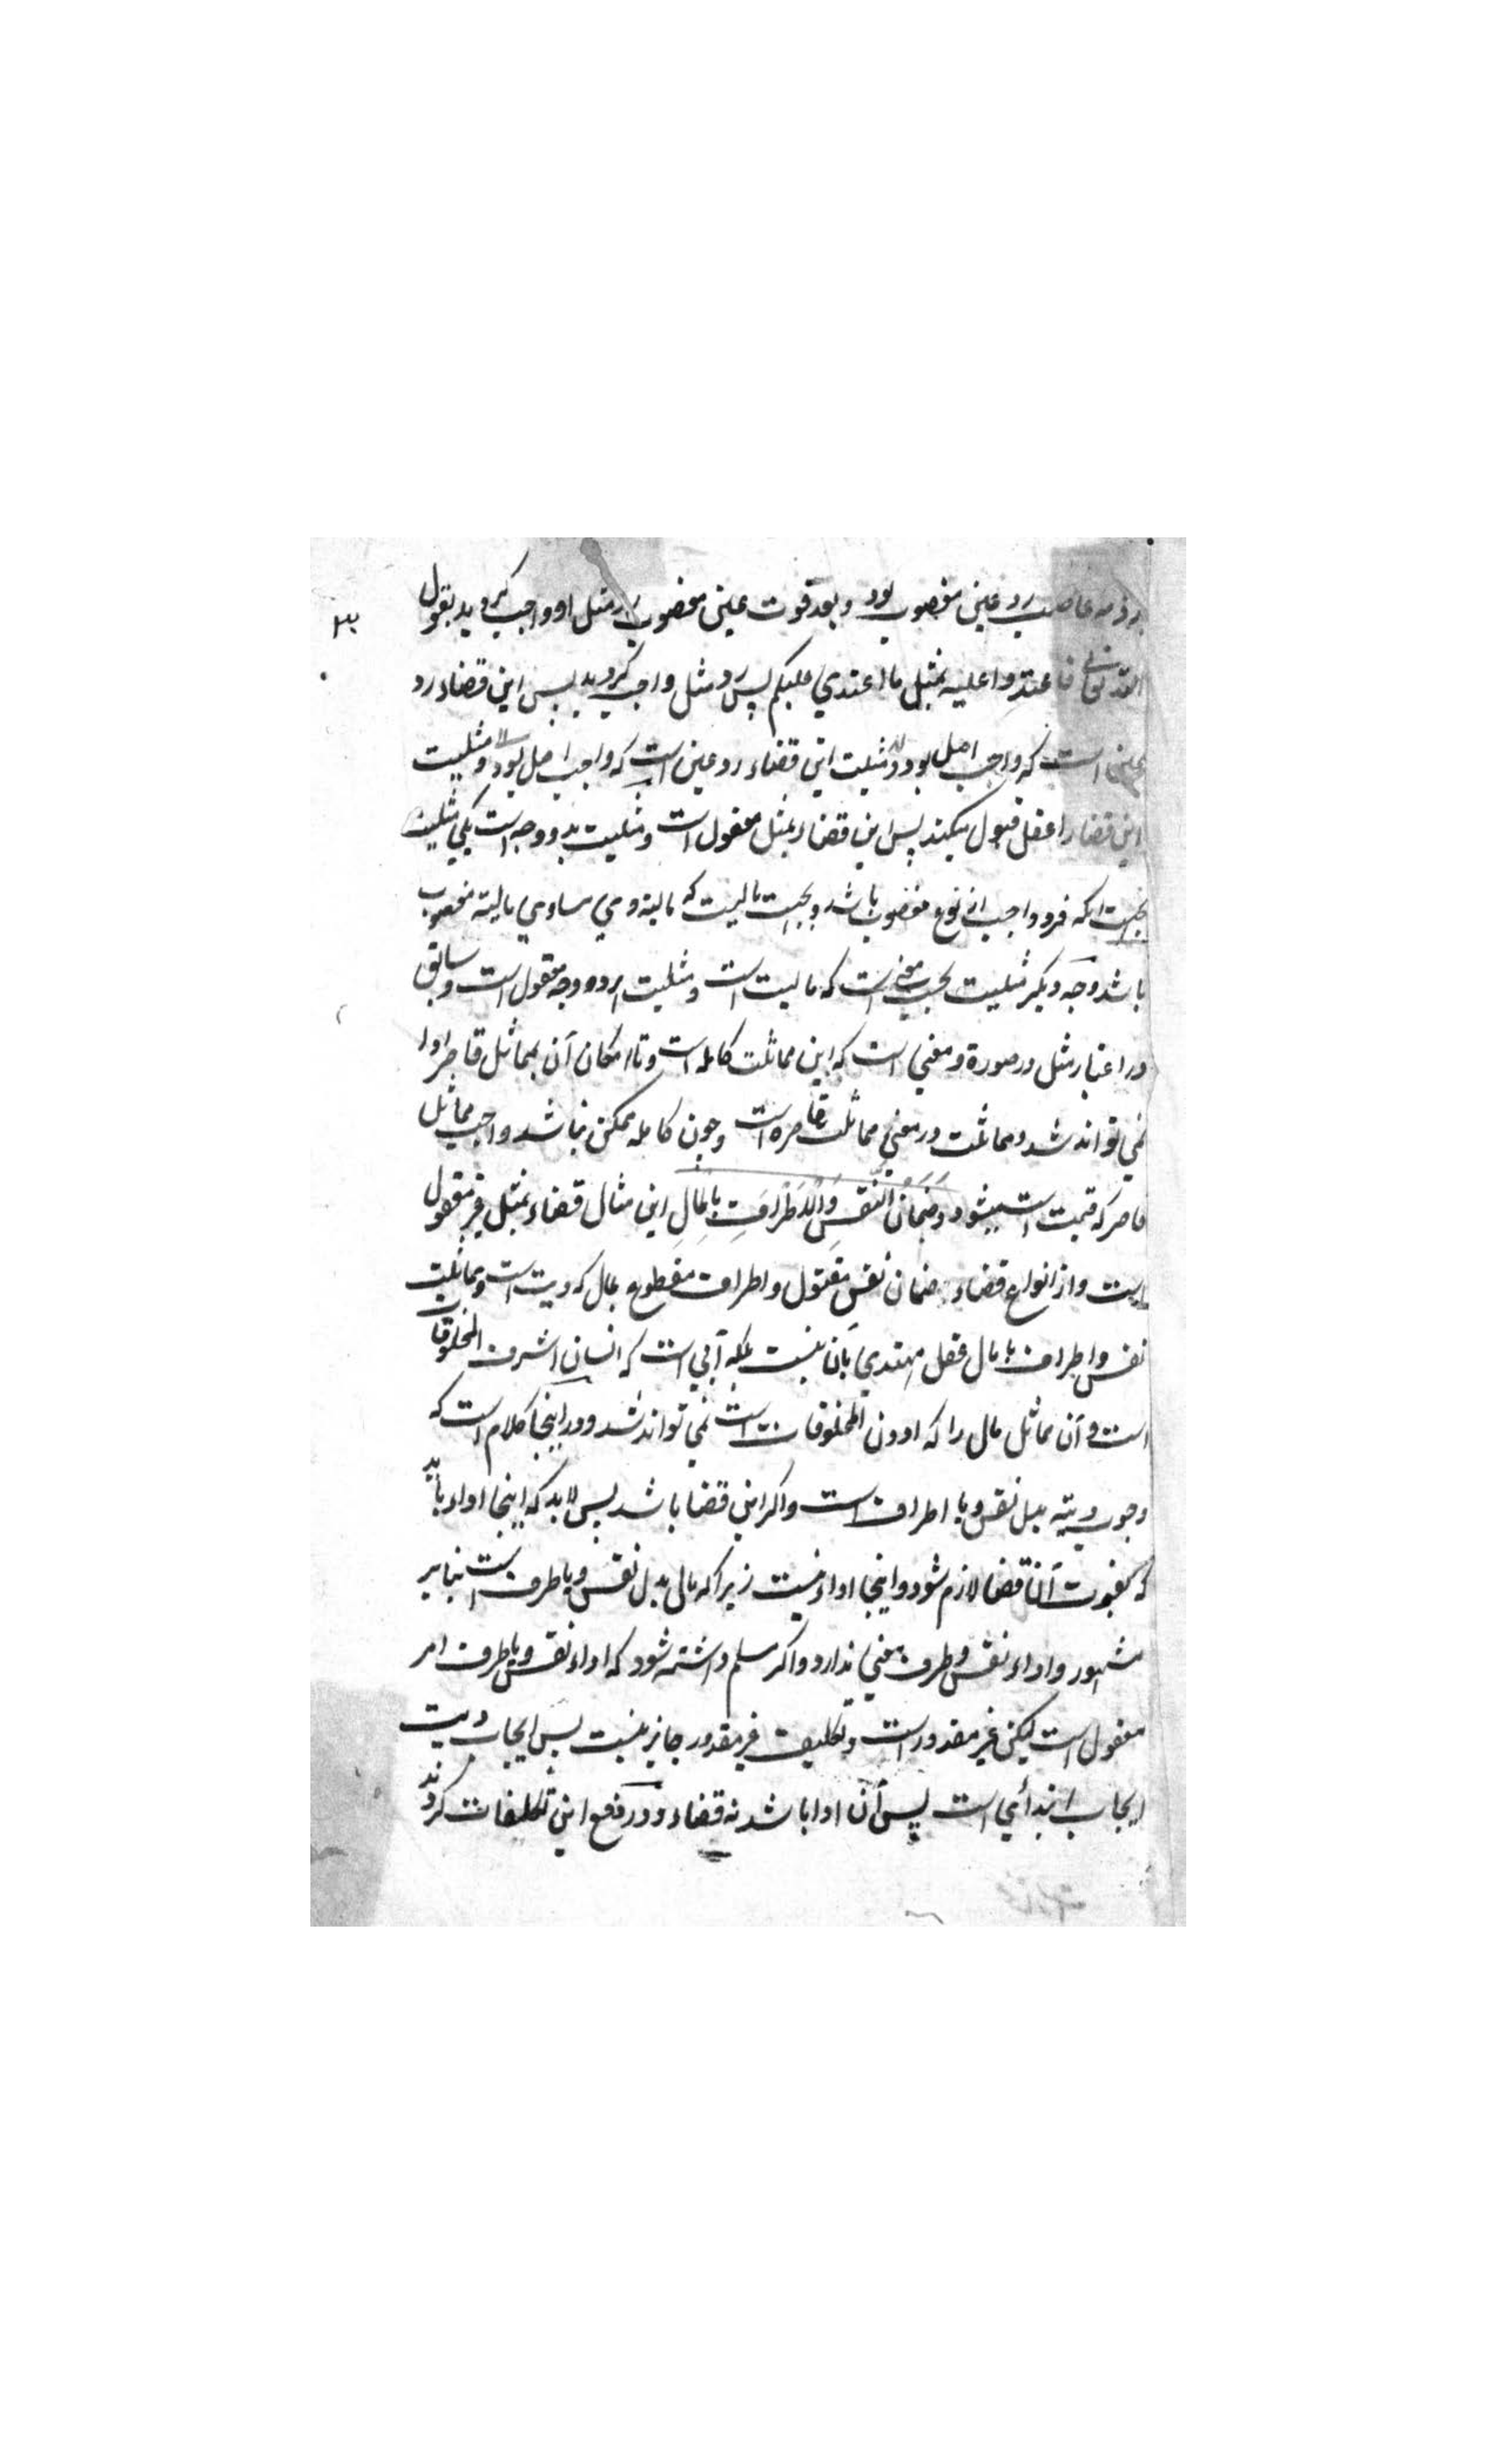 بر ذمه غاصب رد عین مغصوب بود و بعد فوت عین مغصوب رد مثل او واجب کردید بقول
الله تعالی فاعتدوا علیه بمثل ما اعتدی علیکم پس رد مثل واجب کردید پس این قضاء رد
عین است که واجب اصل بود و مثلیت این قضاء رد عین است که واجب اصل بود و مثلیت
این قضا را عقل قبول میکند پس این قضاء بمثل معقول است و مثلیت بدو وجه است یکی مثلیت
بجهت انکه فرد واجب از نوع مغصوب باشد و بجهت مالیت که مالیة وی مساوی مالیة مغصوب
باشد وجه دیکر مثلیت بحسب معنی است که مالیت است و مثلیت هر دو وجه معقول است و سابق
در اعتبار مثل در صورة و معنی است که این مماثلت کامله است و تا امکان آن بمماثل قاصر ادا
نمی تواند شد و مماثلت در معنی مماثلت قاصره است و چون کامله ممکن نباشد واجب مماثل
قاصر که قیمت است میشود وَضَمَانُ النَّفْسِ وَالْاَطْرَافِ بِالْمَالِ این مثال قضاء بمثل غیر معقول
است و از انواع قضاء ضمان نفس مقتول و اطراف مقطوع بمال که دیت است و مماثلت
نفس و اطراف با مال عقل مهتدی بآن نیست بلکه آبی است که انسان اشرف المخلوقات
است و آن مماثل مال را که ادون المخلوقات است نمی تواند شد و در اینجا کلام است که
وجوب دیته بدل نفس و یا اطراف است و اکر این قضا باشد پس لابد که اینجا اداء باید
که بفوت آن قضا لازم شود و اینجا اداء نیست زیرا که مال بدل نفس و یا طرف است بنا بر
مشهور و اداء نفس و طرف معنی ندارد و اکر مسلم داشته شود که اداء نفس و یا طرف امر
معقول است لیکن غیر مقدور است و تکلیف غیر مقدور جایز نیست پس ایجاب دیت
ایجاب ابتدائی است پس آن ادا باشد نه قضاء و در دفع این تکلیفات کردند